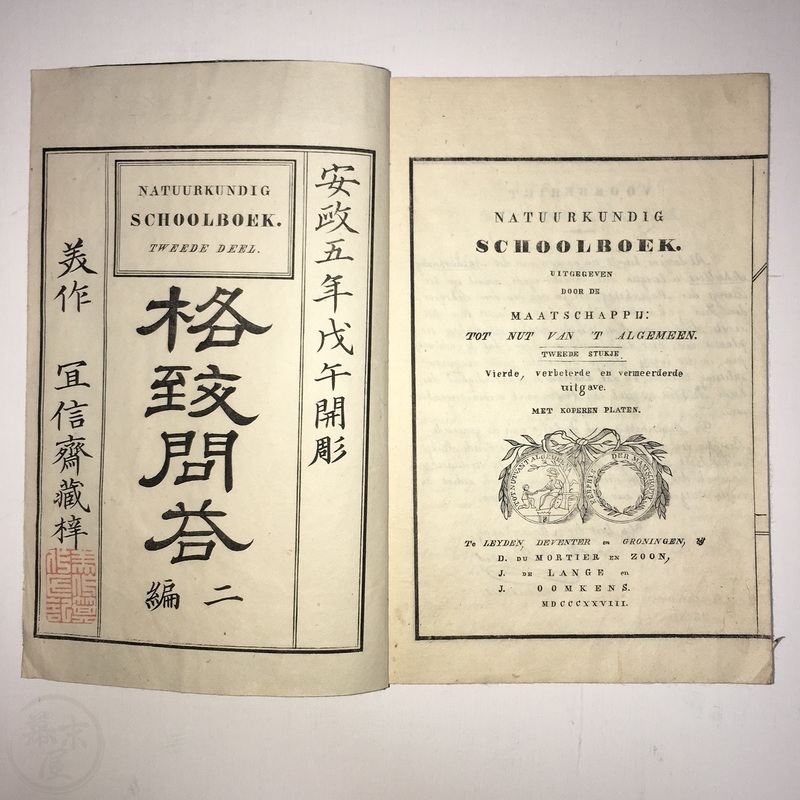 安政五年戊午開彫
NATUURKUNDIG
SCHOOLBOEK.
TWEEDE DEEL.
格致問荅
二編
美作 冝信齋藏梓
NATUURKUNDIG
SCHOOLBOEK.
UITGEGEVEN
DOOR DE
MAATSCHAPPIJ:
TOT NUT VAN 'T ALGEMEEN.
TWEEDE STUKJE.
Vierde, verbeterde en vermeerderde
uitgave.
MET KOPEREN PLATEN.
TOT NUT VAN T ALGEMEEN
DER MAATSCHAPPY
Te LEYDEN, DEVENTER en GRONINGEN, bij
D. DU MORTIER EN ZOON,
J. DE LANGE en
J. OOMKENS.
MDCCCXXVIII.
幕末屋